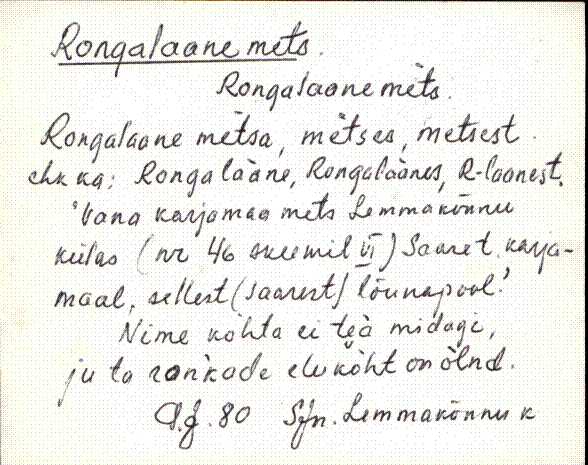 Rongalaane mets.
Rongalaane mets.
Rongalaane metsa, metses, metsest.
ehk ka: Rongalaane, Rongalaanes, R-laanest.
'Vana karjamaa mets Lemmakõnnu
külas (nr 46 skeemil VI) Saaret. karja-
maal, sellest (saarest) lõunapool.'
Nime kohta ei tea midagi,
ju ta ronkade elukoht on õlnd.
80 Sjn. Lemmakõnnu k